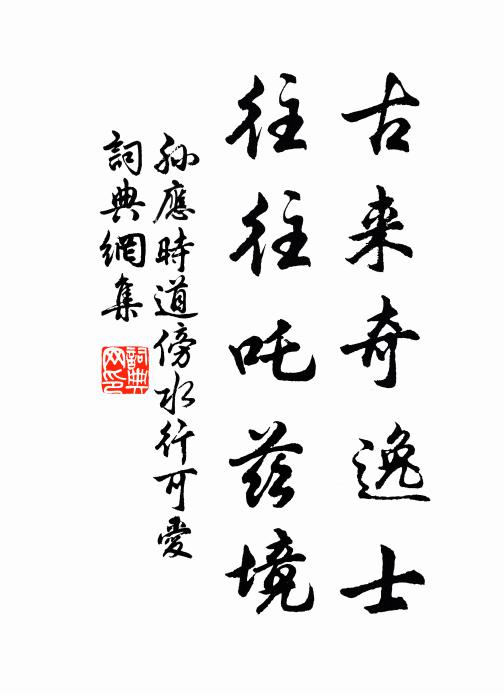 古来奇逸士
往往吒兹境
孙應時道傍水行可愛
詞典網集
詞典网印